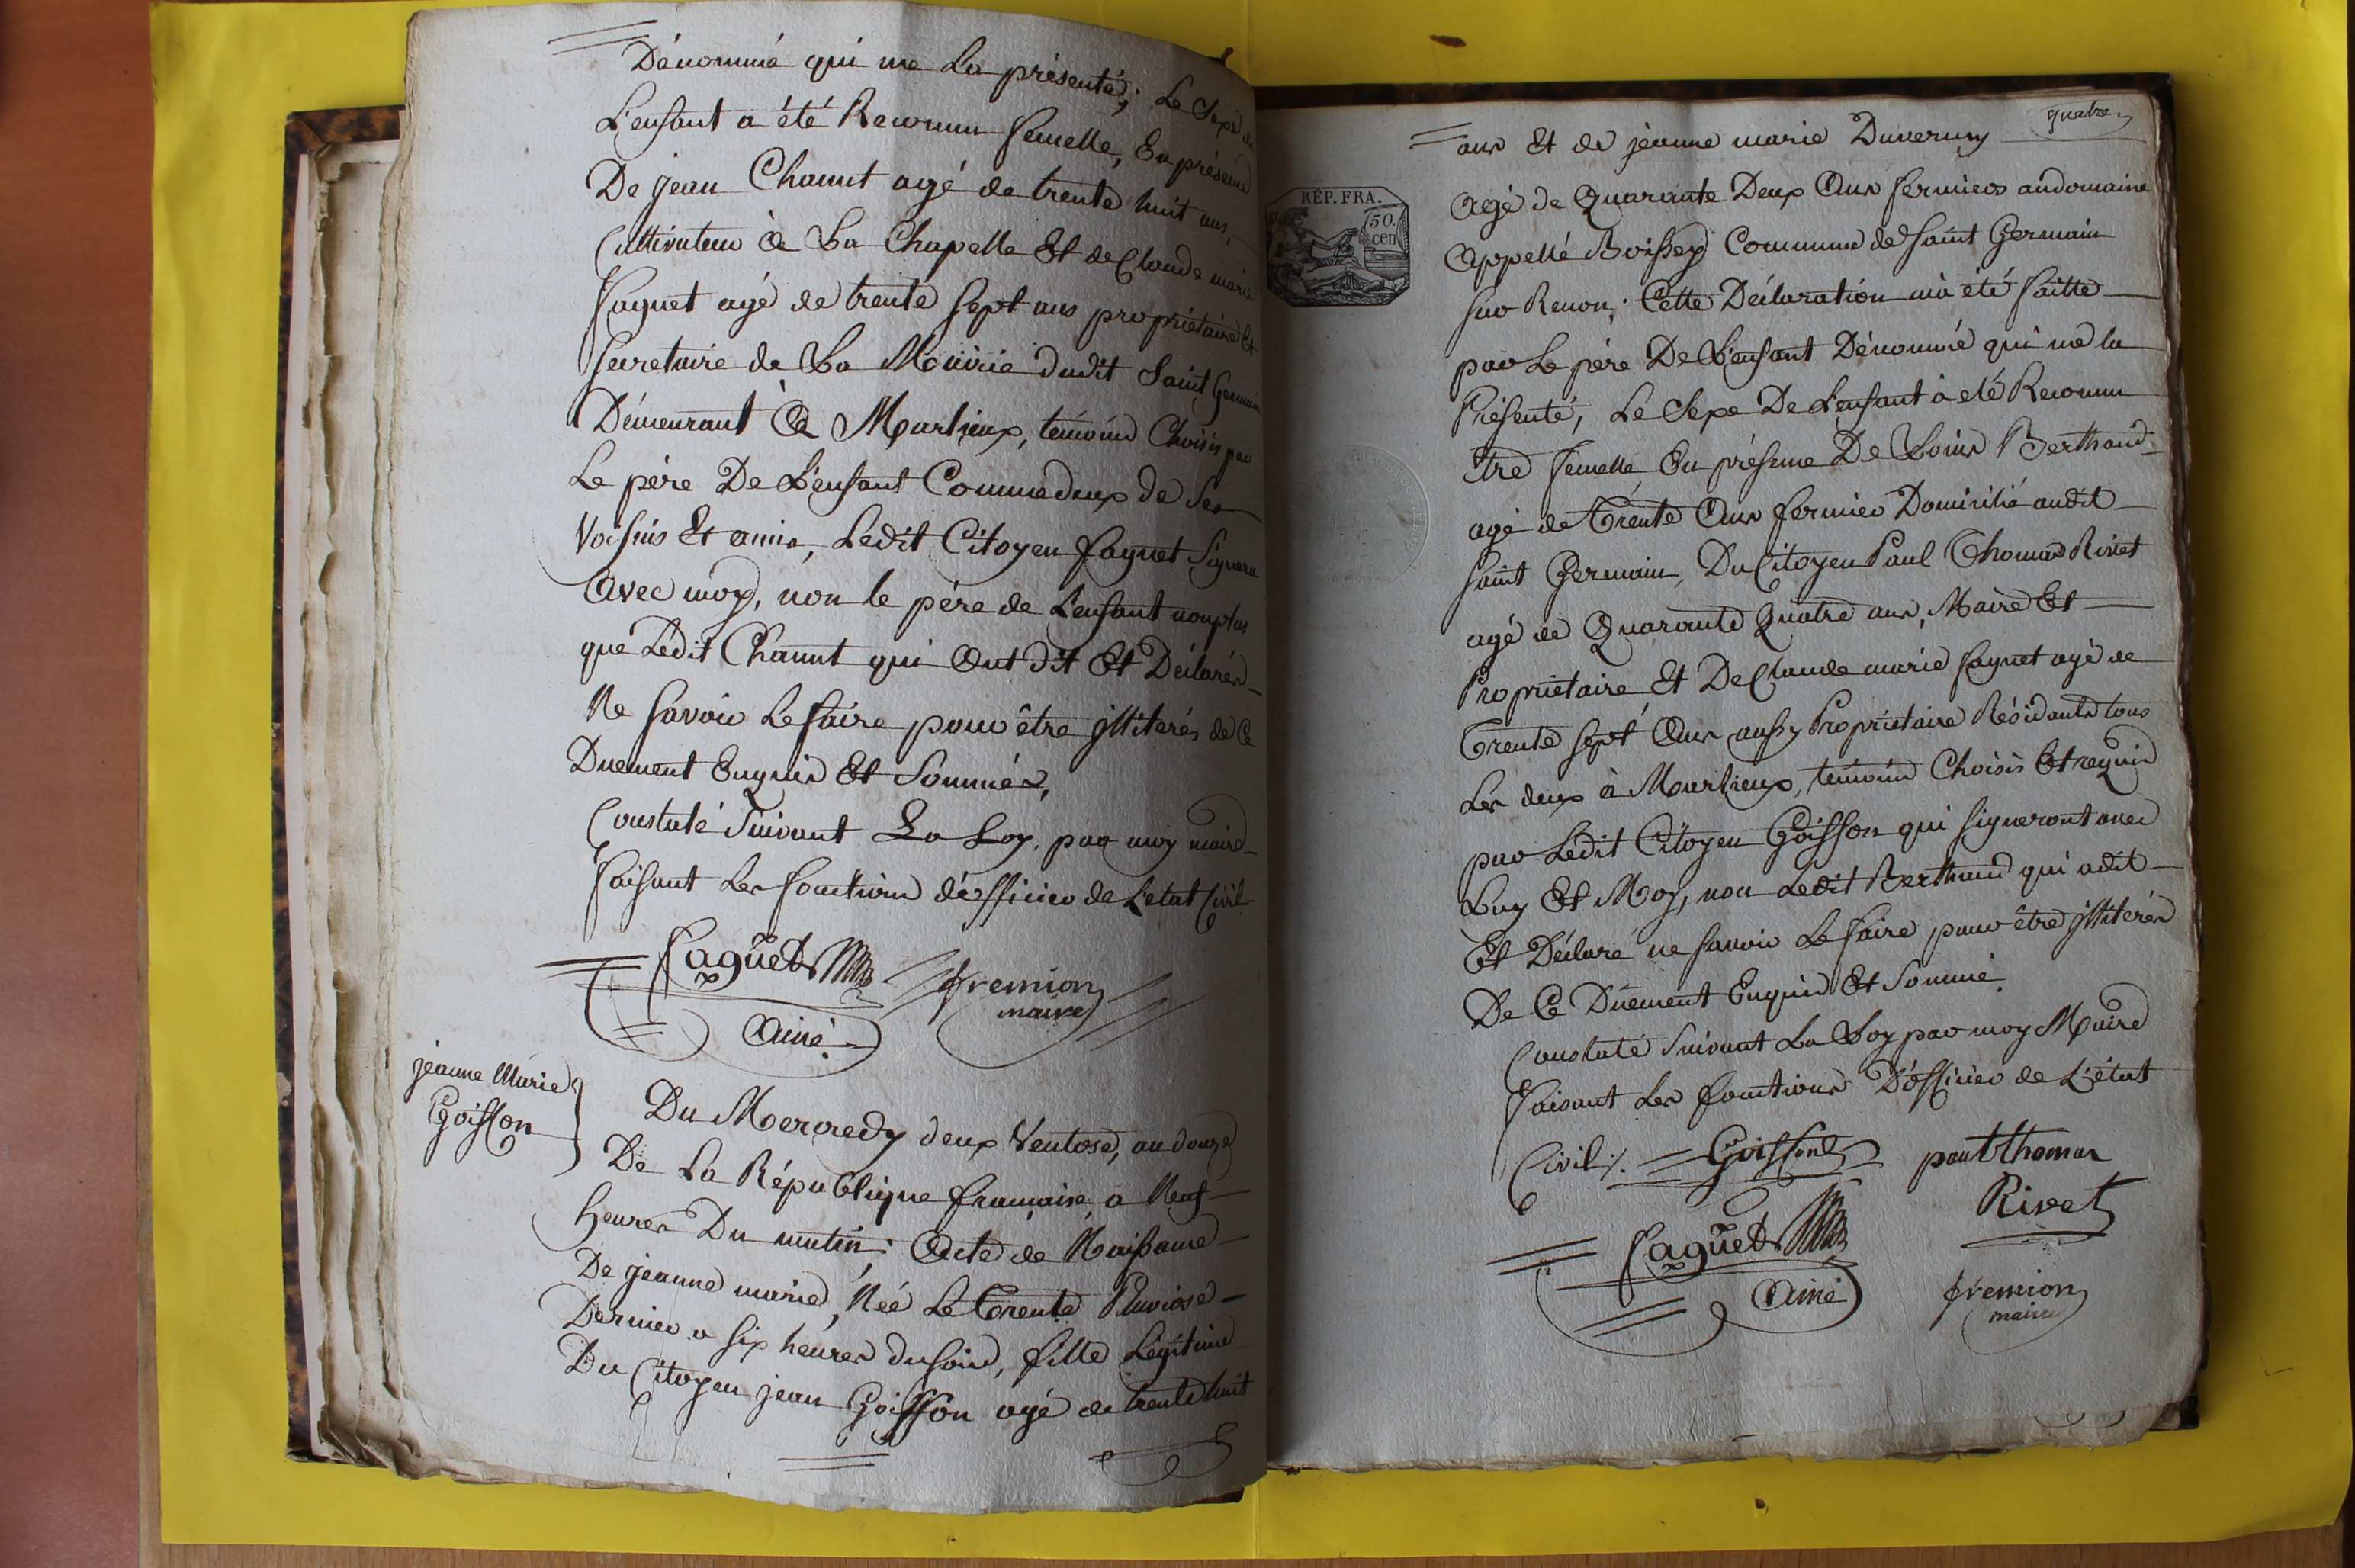 Dénommé qui me La présenté; Le Sexe de
L'enfant a été Reconnu femelle, En présence
De jean Chanut agé de trente huit ans,
Cultivateur à La Chapelle Et de Claude marie
Faguet agé de trente sept ans propriétaire Et
Secretaire de La Mairie dudit Saint Germain
Démeurant à Marlieux, témoins Choisis par
Le père De L'enfant Comme deux de Ses
Voisins Et amis, Ledit Citoyen faguet Signera
Avec moy, non le pére de L'enfant nonplus
que Ledit Chanut qui Ont dit Et Déclarés
Ne Savoir Le faire pour être illiterés de Ce
Duement Enquis Et Sommés,
Constaté Suivant La Loy, par moy maire
Faisant Les fonctions d'officier de L'etat Civil
Faguet fremion
maire
Ainé
jeanne Marie
Goiffon
Du Mercredy deux Ventose, an douze
De La République francaise, a Neuf
heures Du matin; Acte de Naissance
De jeanne marie, Née Le Trente Pluviose
Dernier a six heures du soir, fille Légitime
Du Citoyen jean Goiffon agé de trente huit
quatre
ans Et de jeanne marie Duverny
Agé de Quarante Deux Ans fermiers au domaine
Appellé Boissey Commune de Saint Germain
Sur Renon; Cette Déclaration m'a été faitte
par Le pére De L'enfant Dénommé qui me la
Présenté, Le Sexe De L'enfant à eté Reconnu
être femelle, En présence De Louis Berthaud
agé de Trente Ans fermier Domicilié audit
Saint Germain, Du Citoyen Paul Thomas Rivet
agé de Quarante Quatre ans, Maire Et
Propriétaire Et De Claude marie faguet agé de
Trente sept Ans aussy Propriétaire Résidants tous
Les deux à Marlieux, témoins Choisis Et requis
par Ledit Citoyen Goiffon qui signeront avec
Luy Et Moy, non Ledit Berthaud qui a dit
Et Déclaré ne savoir Le faire pour être illiterés
De Ce Duement Enquis Et Sommé.
Constaté Suivant La Loy par moy Maire
Faisant Les fonctions D'officier de L'état
Civil. Goiffon paul thomas
Rivet
Faguet
Ainé fremion
maire
RÉP. FRA.
50.
cen